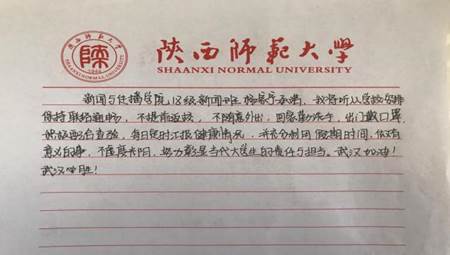 陕西师范大学
1944
SHAANXI NORMAL UNIVERSITY
陕西师范大学
SHAANXI NORMAL UNIVERSITY
新闻与传播学院18级新闻班 承诺, 我将听从学校安排
保持联络通畅, 不提前返校, 不随意外出, 回家勤洗手, 出门戴口罩,
配合查验, 每日定时汇报健康情况, 并充分利用假期时间, 做有
意义的事, 不虚度光阴, 努力彰显当代大学生的责任与担当。武汉加油!
武汉必胜!